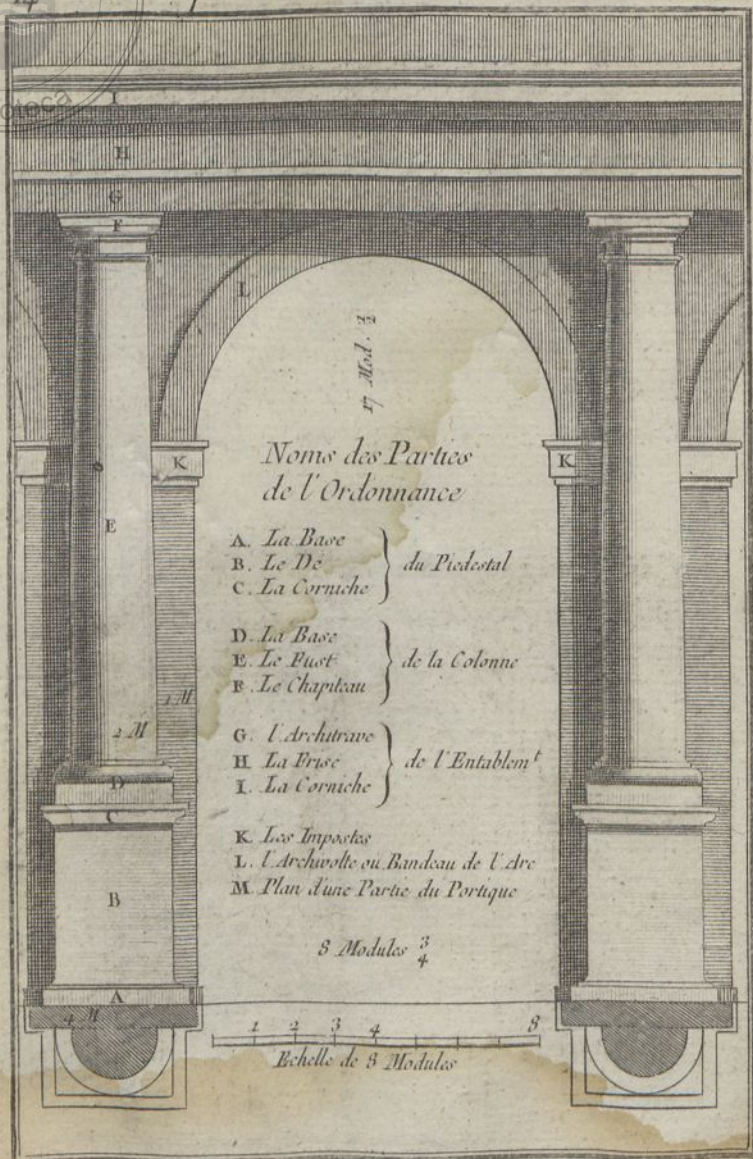 14
oteca
I
H
G
F
L
17 Mod. ½
K
K
Noms des Parties
de l'Ordonnance
E
A. La Base
B. Le Dé
C. La Corniche
du Piedestal
D. La Base
E. Le Fust
F. Le Chapiteau
de la Colonne
G. l'Architrave
H La Frise
I. La Corniche
de l'Entablemt
K Les Impostes
L. l'Archivolte ou Bandeau de l'Arc
M Plan d'une Partie du Portique
8 Modules 3/4
1 M
2 M
D
C
B
A
4 M
1 2 3 4 8
Echelle de 8 Modules